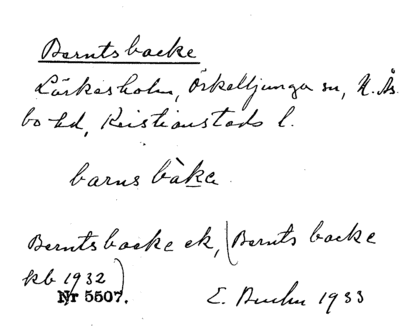 Berntsbacke
Lärkesholm, Örkelljunga sn, N. Ås-
bo hd, Kristianstads l.
barns bàka
Berntsbacke ek, (Bernts backe
kb 1932)
Nr 5507.
E. 1933